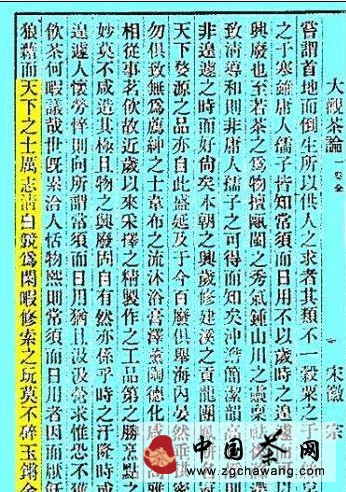 大觀茶論 一卷全 宋徽宗
嘗謂首地而倒生所以供人之求者其類不一穀粟之于
之于寒雖庸人孺子皆知常須而日用不以歲時之遑遽而
興廢也至若茶之為物擅甌閩之秀氣鍾山川之靈稟祛
致清導和則非庸人孺子之可得而知矣沖澹簡潔韻高
非遑遽之時而好尚矣本朝之興歲修建溪之貢龍團鳳
天下婺源之品亦自此盛延及于今百廢俱舉海內晏然垂
勿俱致無為薦紳之士韋布之流沐浴膏澤薰陶德化咸
相從事茗飲故近歲以來採擇之精製作之工品第之勝烹點之
妙莫不咸造其極且物之興廢固自有然亦係乎時之汙隆時或
遑遽人懷勞悴則向所謂常須而日用猶且汲汲營求惟恐不獲
飲茶何暇議哉世既累洽人恬物熙則常須而日用者因而厭飫
狼藉而天下之士厲志清白競為閑暇修索之玩莫不碎玉鏘金
中国茶网
www.zgchawang.com